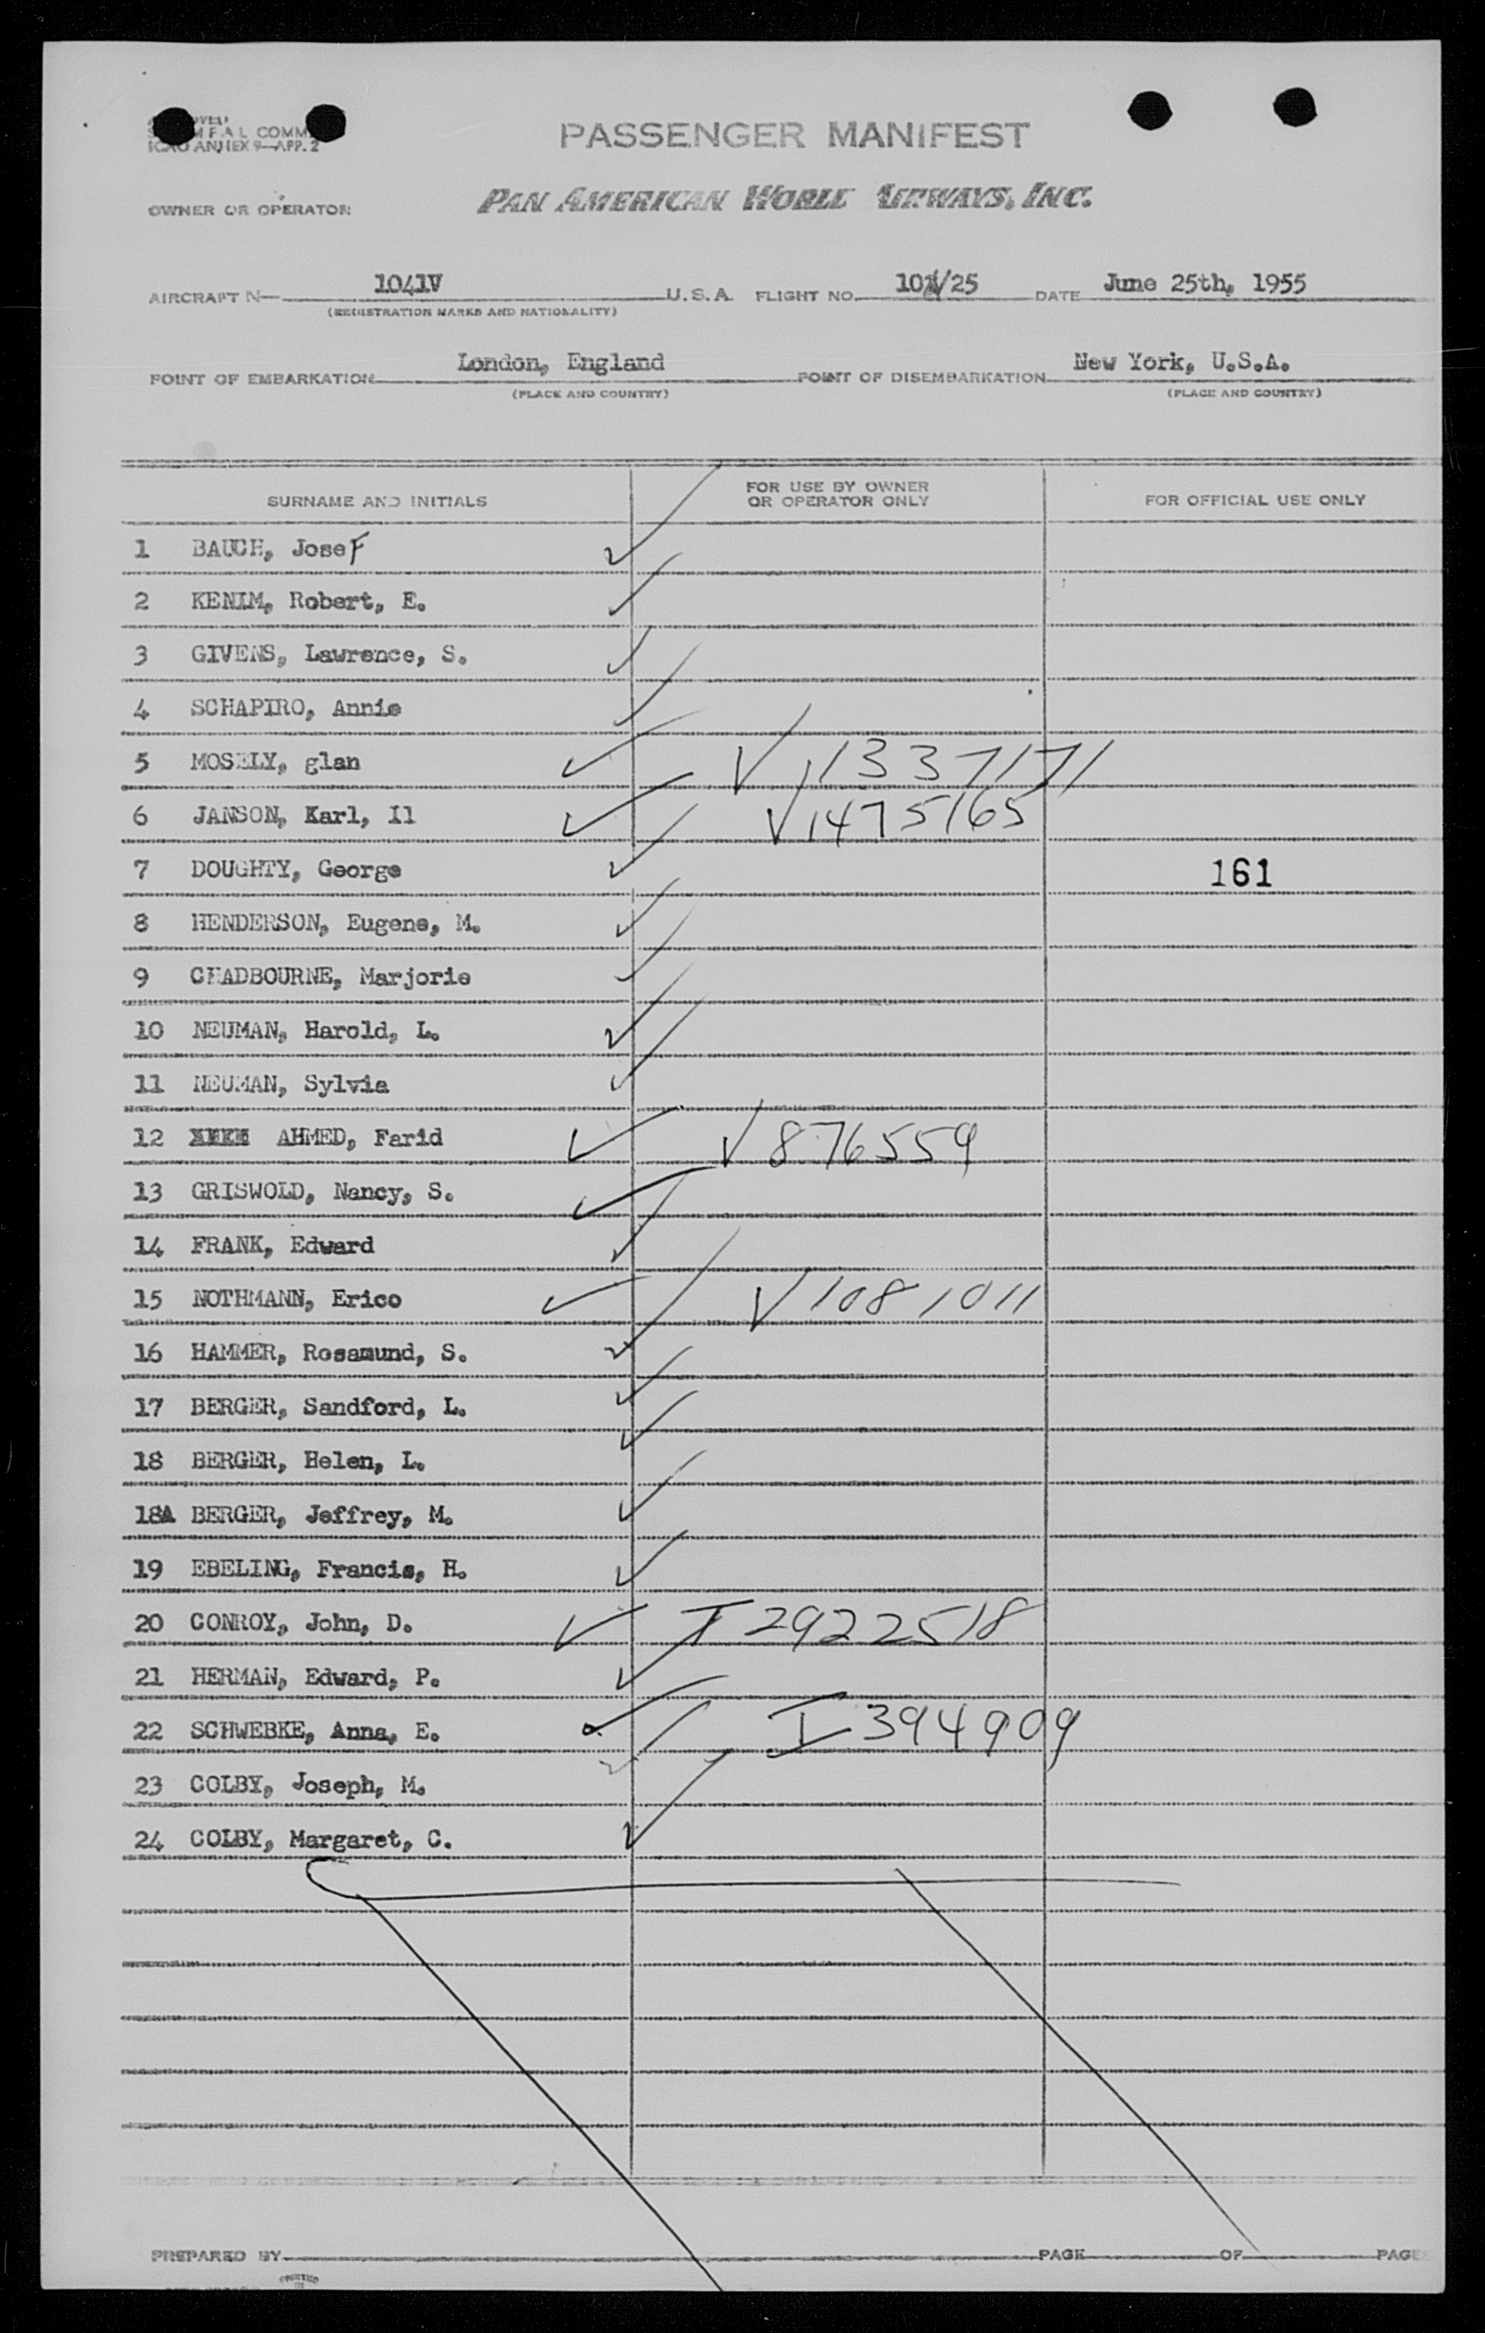 PASSENGER MANIFEST
ICAO ANNEX 9—APP. 2
OWNER OR OPERATOR PAN AMERICAN WORLD AIRWAYS, INC.
AIRCRAFT N— 1041V U.S.A. FLIGHT NO. 101/25 DATE June 25th, 1955
(REGISTRATION MARKS AND NATIONALITY)
POINT OF EMBARKATION London, England POINT OF DISEMBARKATION New York, U.S.A.
(PLACE AND COUNTRY) (PLACE AND COUNTRY)
SURNAME AND INITIALS FOR USE BY OWNER OR OPERATOR ONLY FOR OFFICIAL USE ONLY
1 BAUCH, Josef
2 KENIM, Robert, E.
3 GIVENS, Lawrence, S.
4 SCHAPIRO, Annie
5 MOSELY, glan V 11337171
6 JANSON, Karl, Il V 1475165
7 DOUGHTY, George 161
8 HENDERSON, Eugene, M.
9 CHADBOURNE, Marjorie
10 NEUMAN, Harold, L.
11 NEUMAN, Sylvia
12 AHMED, Farid V 876559
13 GRISWOLD, Nancy, S.
14 FRANK, Edward
15 NOTHMANN, Erico V 1081011
16 HAMMER, Rosamund, S.
17 BERGER, Sandford, L.
18 BERGER, Helen, L.
18A BERGER, Jeffrey, M.
19 EBELING, Francis, H.
20 CONROY, John, D. I 2922518
21 HERMAN, Edward, P.
22 SCHWEBKE, Anna, E. I 394909
23 COLBY, Joseph, M.
24 COLBY, Margaret, C.
PREPARED BY PAGE OF PAGE